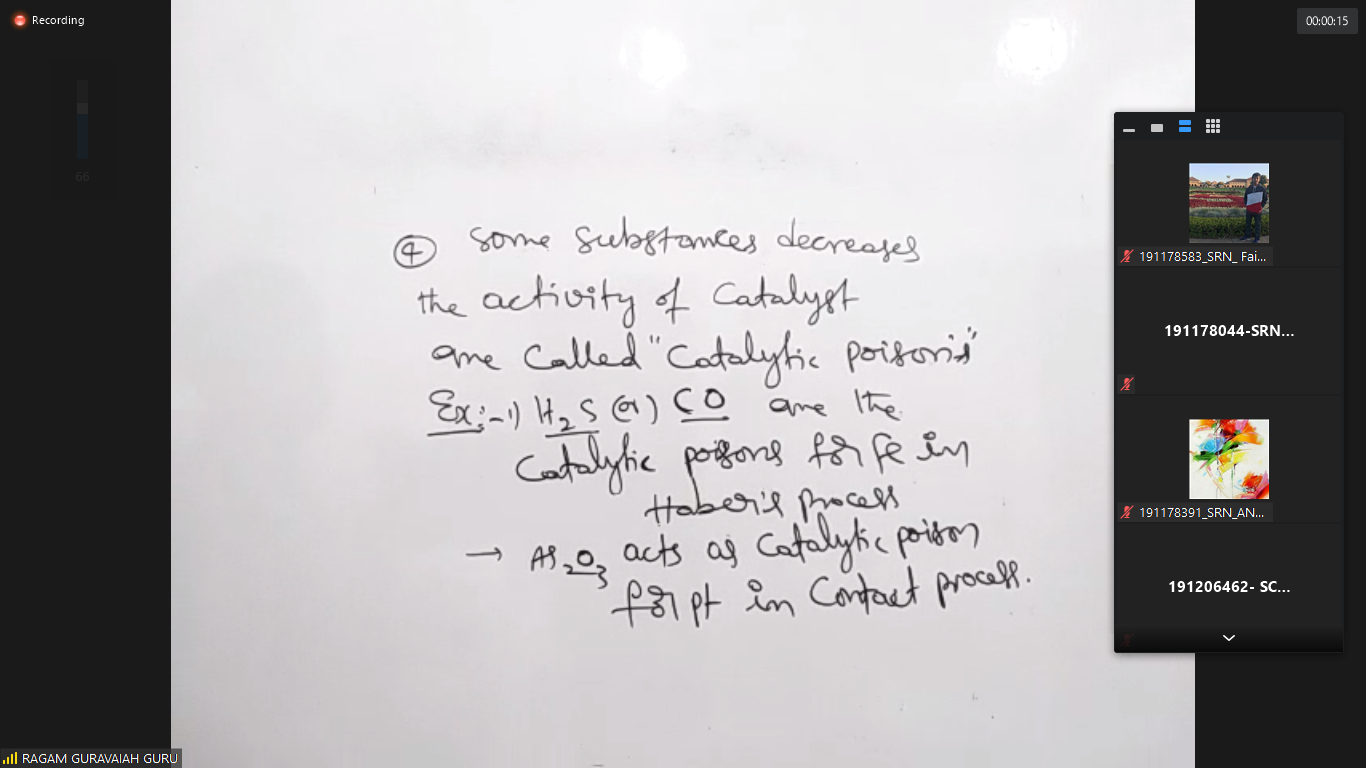 Recording
00:00:15
66
④ Some substances decreases
the activity of Catalyst
are Called "Catalytic poisons"
Ex:-1) H₂S (or) CO are the
Catalytic poisons for Fe in
Haber's process
→ As₂O₃ acts as Catalytic poison
for pt in Contact process.
191178583_SRN_ Fai...
191178044-SRN...
191178391_SRN_AN...
191206462- SC...
RAGAM GURAVAIAH GURU